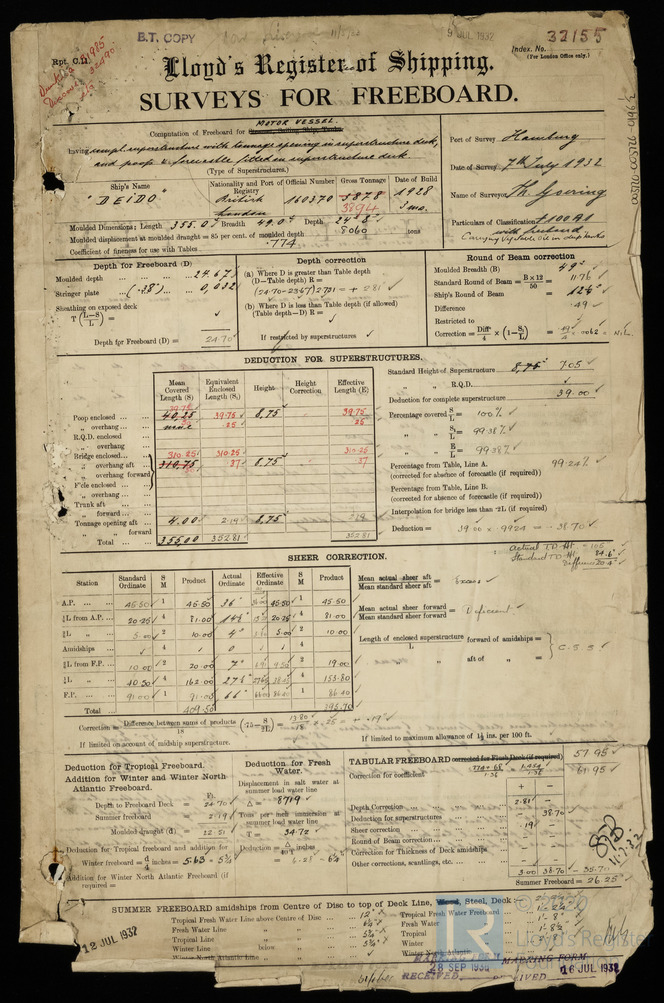 B.T. COPY
9 JUL 1932
32155
Index. No.
(For London Office only.)
Rpt. C.11.
Lloyd's Register of Shipping.
SURVEYS FOR FREEBOARD.
MOTOR VESSEL.
Computation of Freeboard for
having compl. superstructure with tonnage opening in superstructure deck,
and poop & forecastle fitted in superstructure deck.
(Type of Superstructures.)
Port of Survey Hamburg
Date of Survey 7th July 1932
Name of Surveyor Th. Goering
Particulars of Classification +100A1
with freeboard
Carrying Veg. Oil in deep tanks
Ship's Name
Nationality and Port of Registry
Official Number
Gross Tonnage
Date of Build
"DEIDO"
British
London
160370
3878
3894
1928
3 mo.
Moulded Dimensions: Length 355.0 Breadth 49.0 Depth 24'8"
Moulded displacement at moulded draught = 85 per cent. of moulded depth 8060 tons
Coefficient of fineness for use with Tables .774
Depth for Freeboard (D)
Moulded depth 24.67
Stringer plate (.38") 0,032
Sheathing on exposed deck
T (L-S/L) =
Depth for Freeboard (D) = 24.70
Depth correction
(a) Where D is greater than Table depth
(D—Table depth) R =
(24.70-23.67) 2.731 = + 2.81
(b) Where D is less than Table depth (if allowed)
(Table depth—D) R =
If restricted by superstructures
Round of Beam correction
Moulded Breadth (B) 49'
Standard Round of Beam = B × 12 / 50 = 11.76
Ship's Round of Beam = 12¼"
Difference .49
Restricted to
Correction = Diff / 4 × (1 - S₁/L) = .0062 = Nil.
DEDUCTION FOR SUPERSTRUCTURES.
Mean Covered Length (S)
Equivalent Enclosed Length (S₁)
Height
Height Correction
Effective Length (E)
Poop enclosed 39.75 40,25 39.75 8,75 39.75
" overhang .25 .25
R.Q.D. enclosed
" overhang
Bridge enclosed 310.25 310.25 310.25
" overhang aft 310,75 .37 8,75 .37
" overhang forward
F'cle enclosed
" overhang
Trunk aft
" forward
Tonnage opening aft 4.00 2.19 8,75 2.19
" forward
Total 355.00 352.81 352.81
Standard Height of Superstructure 8,75 7.05
" " R.Q.D.
Deduction for complete superstructure 39.00
Percentage covered S/L = 100%
" " S₁/L = 99.38%
" " E/L = 99.38%
Percentage from Table, Line A. 99.24%
(corrected for absence of forecastle (if required))
Percentage from Table, Line B.
(corrected for absence of forecastle (if required))
Interpolation for bridge less than ·2L (if required)
Deduction = 39.00 × .9924 = - 38.70
SHEER CORRECTION.
Station
Standard Ordinate
S M
Product
Actual Ordinate
Effective Ordinate
S M
Product
A.P. 45.50 1 45.50 36" 45.50 1 45.50
⅙L from A.P. 20.25 4 81.00 20.25 4 81.00
⅓L " 5.00 2 10.00 4" 5.00 2 10.00
Amidships 4 0 4
⅓L from F.P. 10.00 2 20.00 7" 9.50 2 19.00
⅙L " 40.50 4 162.00 4 153.80
F.P. 91.00 1 91.00 66" 1 86.40
Total 409.50 395.70
Mean actual sheer aft / Mean standard sheer aft = Excess
Mean actual sheer forward / Mean standard sheer forward = Deficient
Length of enclosed superstructure / L forward of amidships =
" aft of " =
C.S.S
Actual T.D. Ht.
Standard T.D. Ht.
Difference
Correction = Difference between sums of products / 18 (·75 - S/2L) = 13.80 / 18 × .25 = + .19
If limited on account of midship superstructure.
If limited to maximum allowance of 1½ ins. per 100 ft.
Deduction for Tropical Freeboard.
Addition for Winter and Winter North Atlantic Freeboard.
Ft.
Depth to Freeboard Deck = 24.70
Summer freeboard = 2.19
Moulded draught (d) = 22.51
Deduction for Tropical freeboard and addition for
Winter freeboard = d/4 inches = 5.63 = 5¾
Addition for Winter North Atlantic Freeboard (if required) =
Deduction for Fresh Water.
Displacement in salt water at summer load water line
Δ = 8719
Tons per inch immersion at summer load water line
T = 34.72
Deduction = Δ / 40 T inches
= 6.28 = 6¼
TABULAR FREEBOARD corrected for Flush Deck (if required) 57.95
Correction for coefficient .774+.68 / 1.36 = 1.454 / 1.36 61.95
+ -
Depth Correction 2.81
Deduction for superstructures 38.70
Sheer correction .19
Round of Beam correction
Correction for Thickness of Deck amidships
Other corrections, scantlings, etc.
3.00 38.70 - 35.70
Summer Freeboard = 26.25
11.7.32
SUMMER FREEBOARD amidships from Centre of Disc to top of Deck Line, Wood, Steel, Deck:
Tropical Fresh Water Line above Centre of Disc 12"
Fresh Water Line " " 6¼"
Tropical Line " " 5¾"
Winter Line below " 5¾"
Winter North Atlantic Line " "
Tropical Fresh Water Freeboard
Fresh Water " 1'-8"
Tropical " 1'-8½"
Winter "
Winter North Atlantic "
12 JUL 1932
MARKING FORM
RECEIVED
28 SEP 1936
MARKING FORM
RECEIVED
16 JUL 1932
© 2020
LR
Lloyd's Register
Foundation